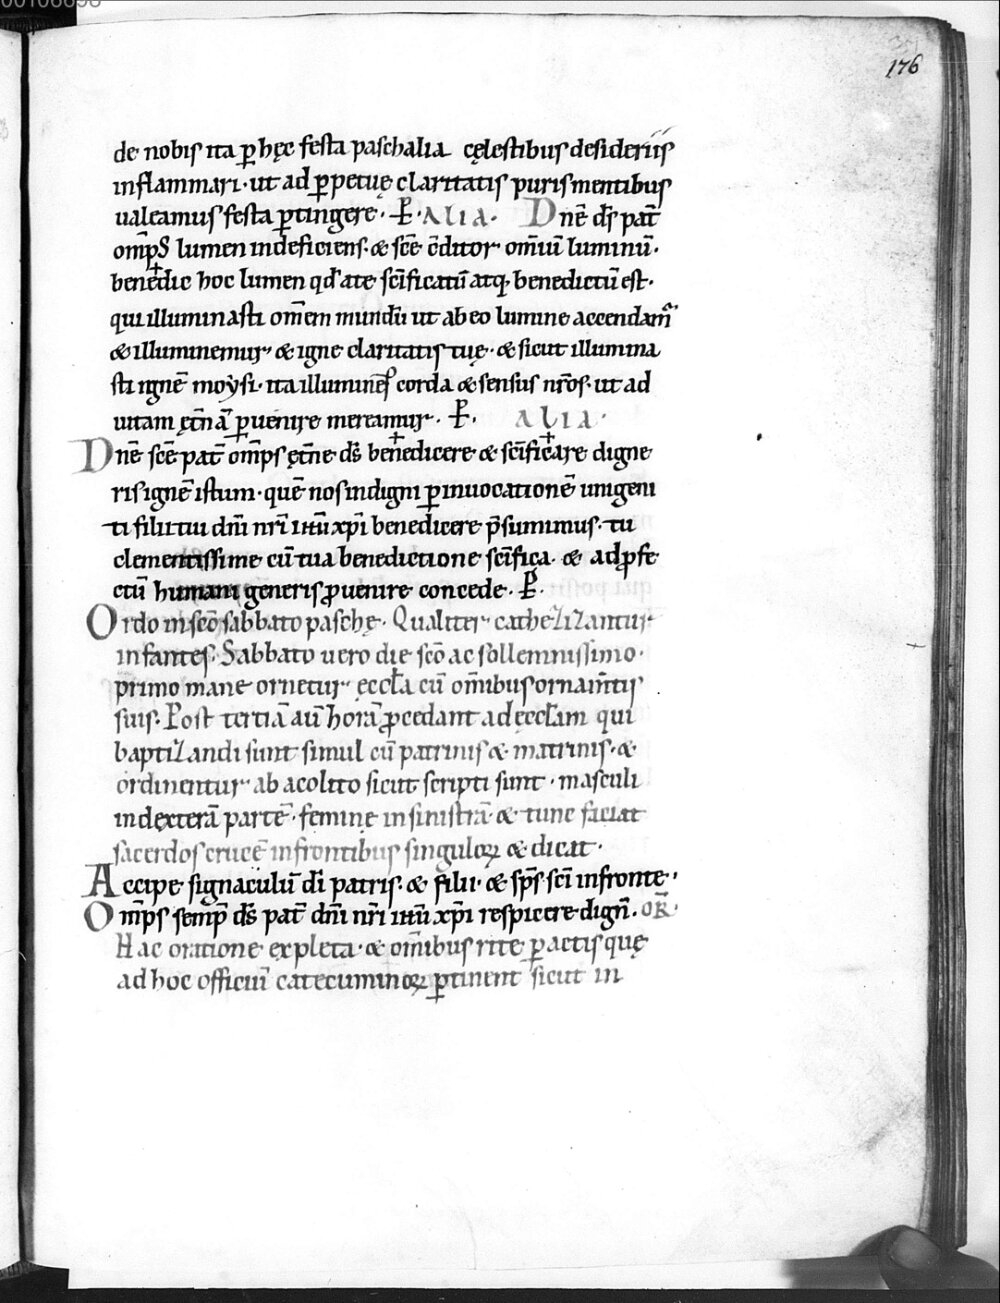 00106898
176
de nobis ita p̱ hęc festa paschalia cęlestibus desideriis
inflammari · ut ad p̱petuę claritatis puris mentibus
ualeamus festa p̱tingere · P̱ · ALIA · Dn̄e ds̄ pat̄
omp̄s lumen indeficiens · & sc̄e c̄ditor om̄iū luminū ·
bene✝dic hoc lumen qd̄ a te sc̄ificatū atq; benedictū est ·
qui illuminasti om̄em mundū ut ab eo lumine accendam̄
& illuminemur & igne claritatis tuę · & sicut illumina
sti ignē moẏsi · ita illumines corda & sensus nr̄os · ut ad
uitam ęt̄nā p̱uenire mereamur · P̱ · ALIA ·
Dn̄e sc̄e pat̄ omp̄s ęt̄ne ds̄ bene✝dicere & sc̄ifi✝care digne
ris ignē istum · quē nos indigni p̱ inuocationē unigeni
ti filii tui dn̄i nr̄i ih̄u xp̄i benedicere p̄sumimus · tu
clementissime cū tua benedictione sc̄ifica · & ad ꝓfe
ctū humani generis ꝓuenire concede · P̱ ·
Ordo in sc̄o sabbato paschę · Qualiter catheZiZantur
infantes · Sabbato uero die sc̄o ac sollemnissimo ·
primo mane ornetur ęccl̄a cū om̄ibus ornam̄tis
suis · Post tertiā aū horā ꝓcedant ad ęccl̄am qui
baptiZandi sunt simul cū patrinis & matrinis · &
ordinentur ab acolito sicut scripti sunt · masculi
in dexterā partē · feminę in sinistrā & tunc faciat
sacerdos crucē in frontibus singuloꝝ & dicat ·
Accipe signaculū dī patris · & filii · & sp̄s sc̄i in fronte ·
Omp̄s semp̱ ds̄ pat̄ dn̄i nr̄i ih̄u xp̄i respicere dign̄ · OR̄ ·
Hac oratione expleta · & om̄ibus rite p̱actis quę
ad hoc officiū catecuminoꝝ p̱tinent sicut in